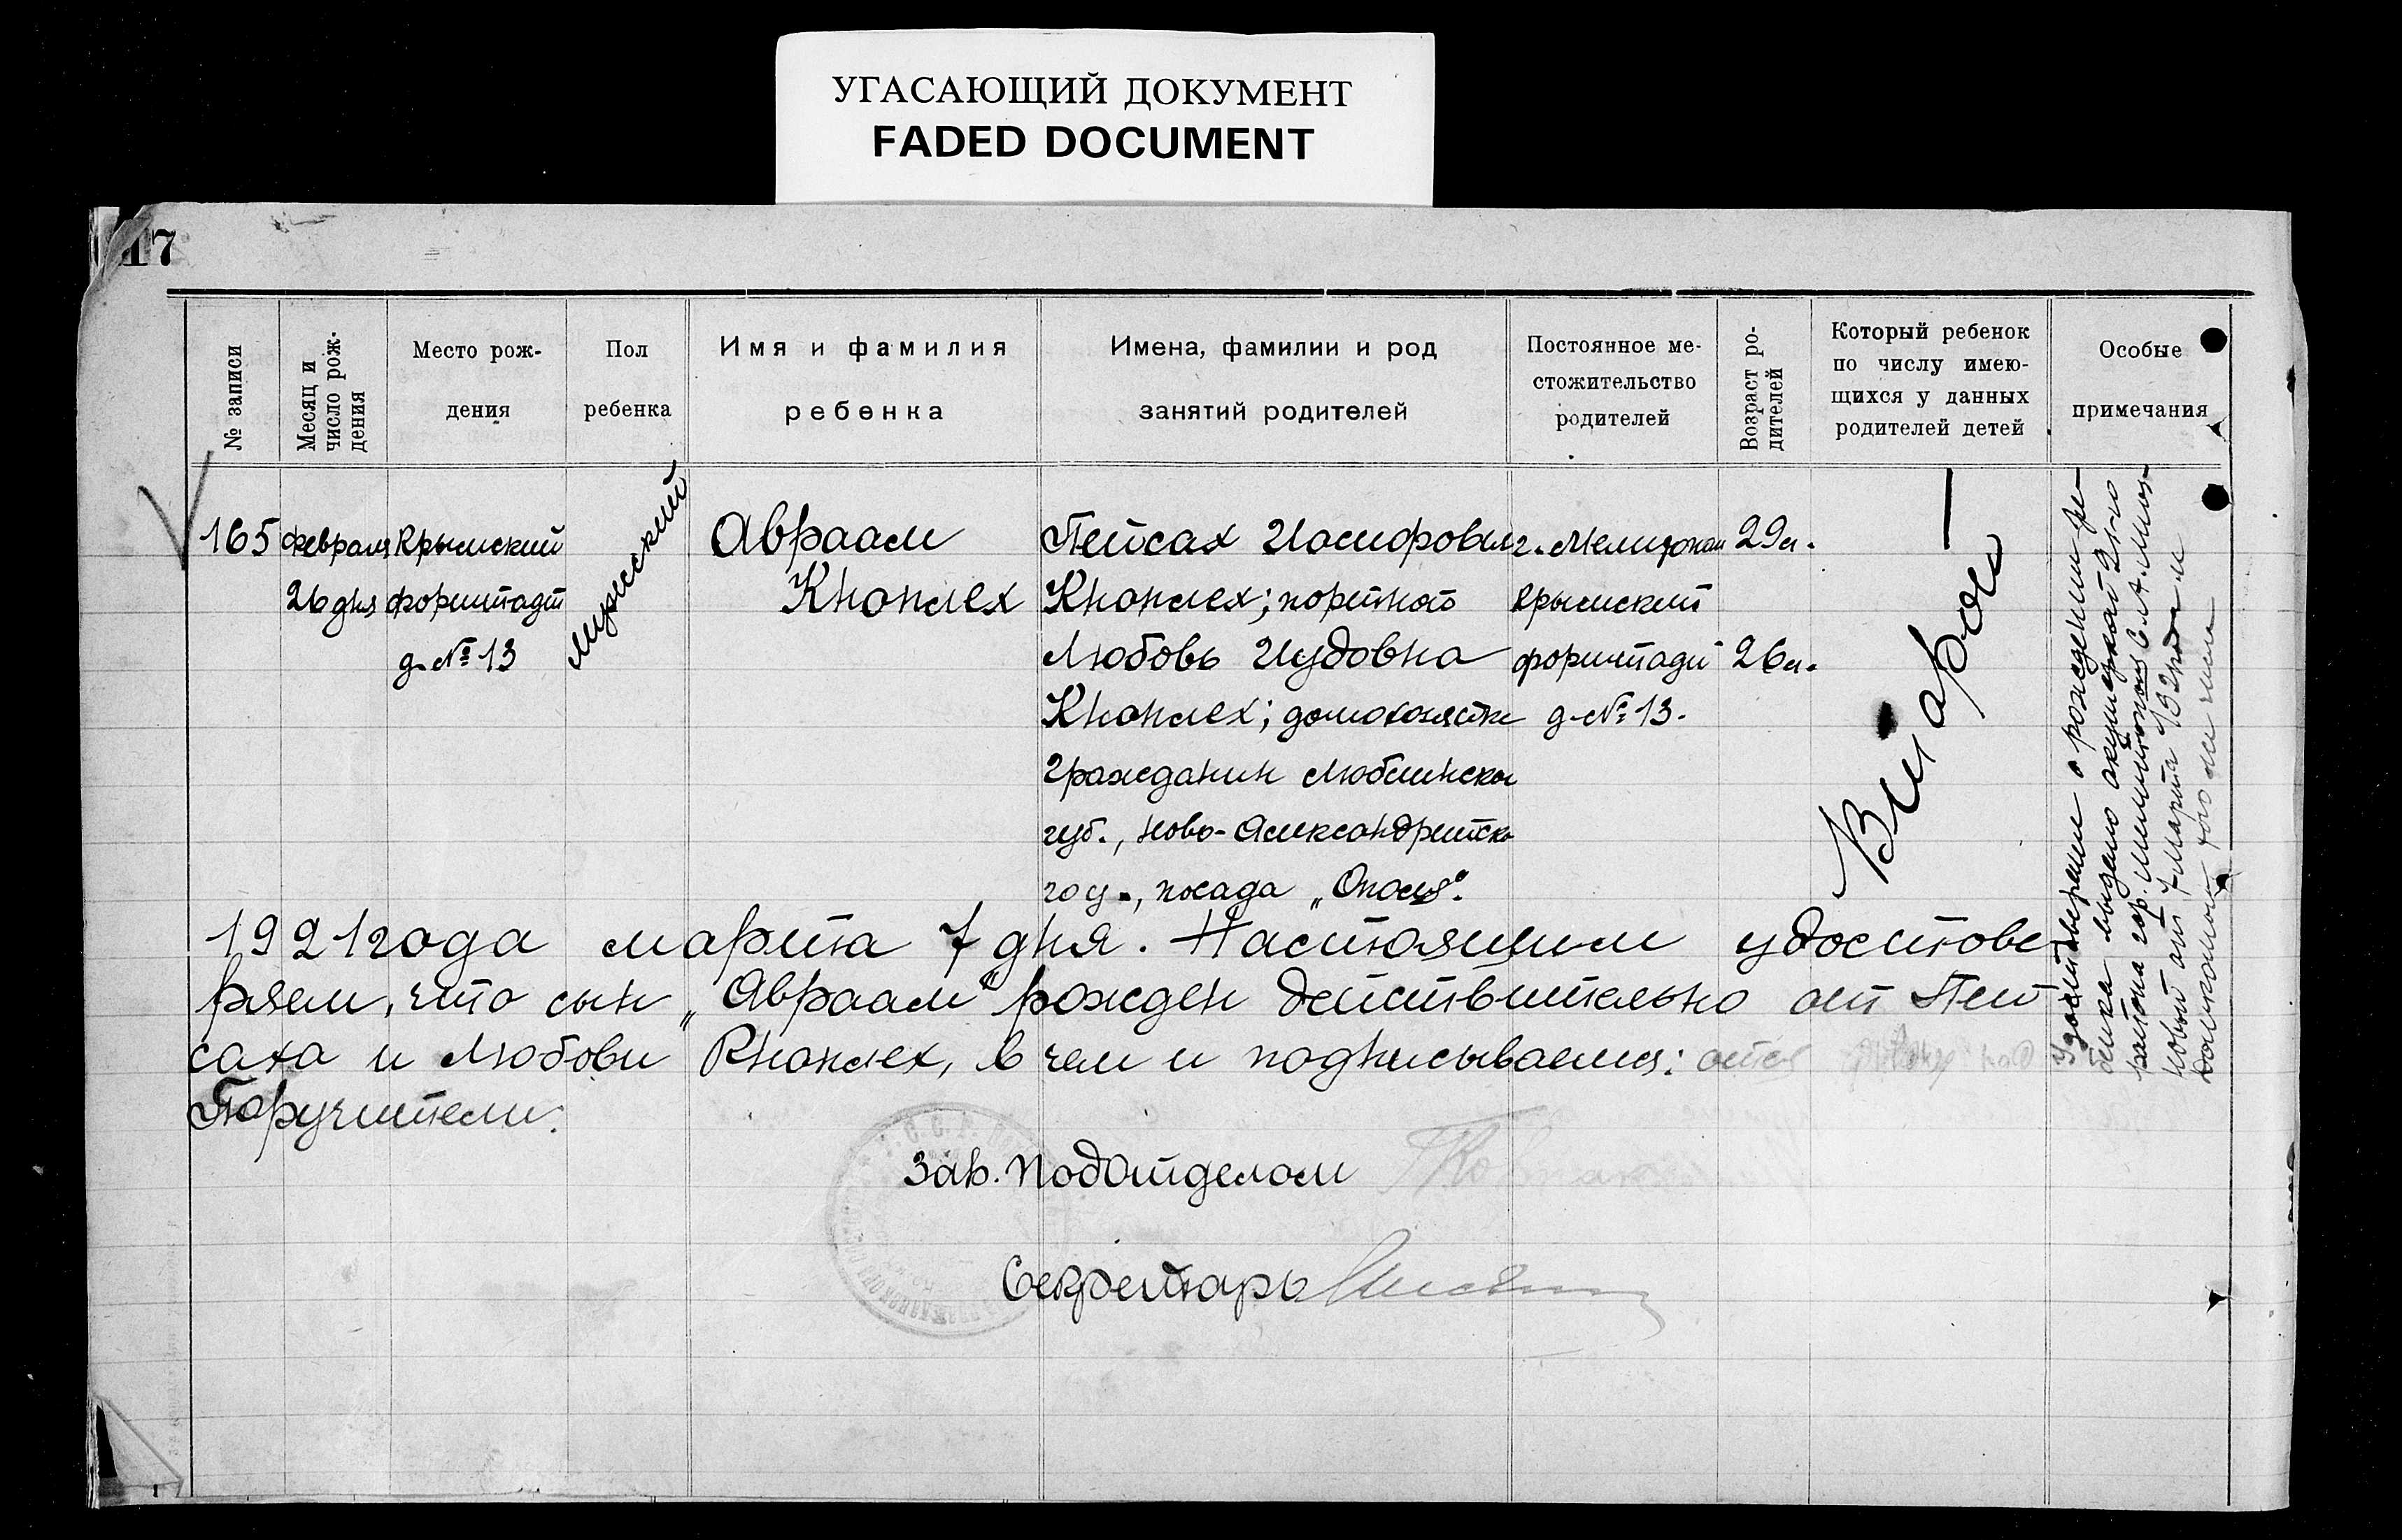 УГАСАЮЩИЙ ДОКУМЕНТ
FADED DOCUMENT
17
№ записи
Месяц и
число рож-
дения
Место рож-
дения
Пол
ребенка
Имя и фамилия
ребенка
Имена, фамилии и род
занятий родителей
Постоянное ме-
стожительство
родителей
Возраст ро-
дителей
Который ребенок
по числу имею-
щихся у данных
родителей детей
Особые
примечания
165
февраля
26 дня
Крымский
форштадт
д. № 13
мужской
Авраам
Кнопмех
Пейсах Иосифович
Кнопмех; портной
Любовь Иудовна
Кнопмех; домохозяйка
гражданин Люблинской
губ., Ново-Александрийско
го у., посада „Ополя".
г. Мелитополь
Крымский
форштадт
д. № 13.
29 л.
26 л.
Второй
Удостоверение о рождении ре-
бенка выдано акушеркой 2-го
района гор. Мелитополя С. А.
от 7 марта 192 года
1921 года марта 7 дня. Настоящим удостове
ряем, что сын „Авраам" рожден действительно от Пей
саха и Любови Кнопмех, в чем и подписываемся:
Поручители:
Зав. Подотделом
Секретарь